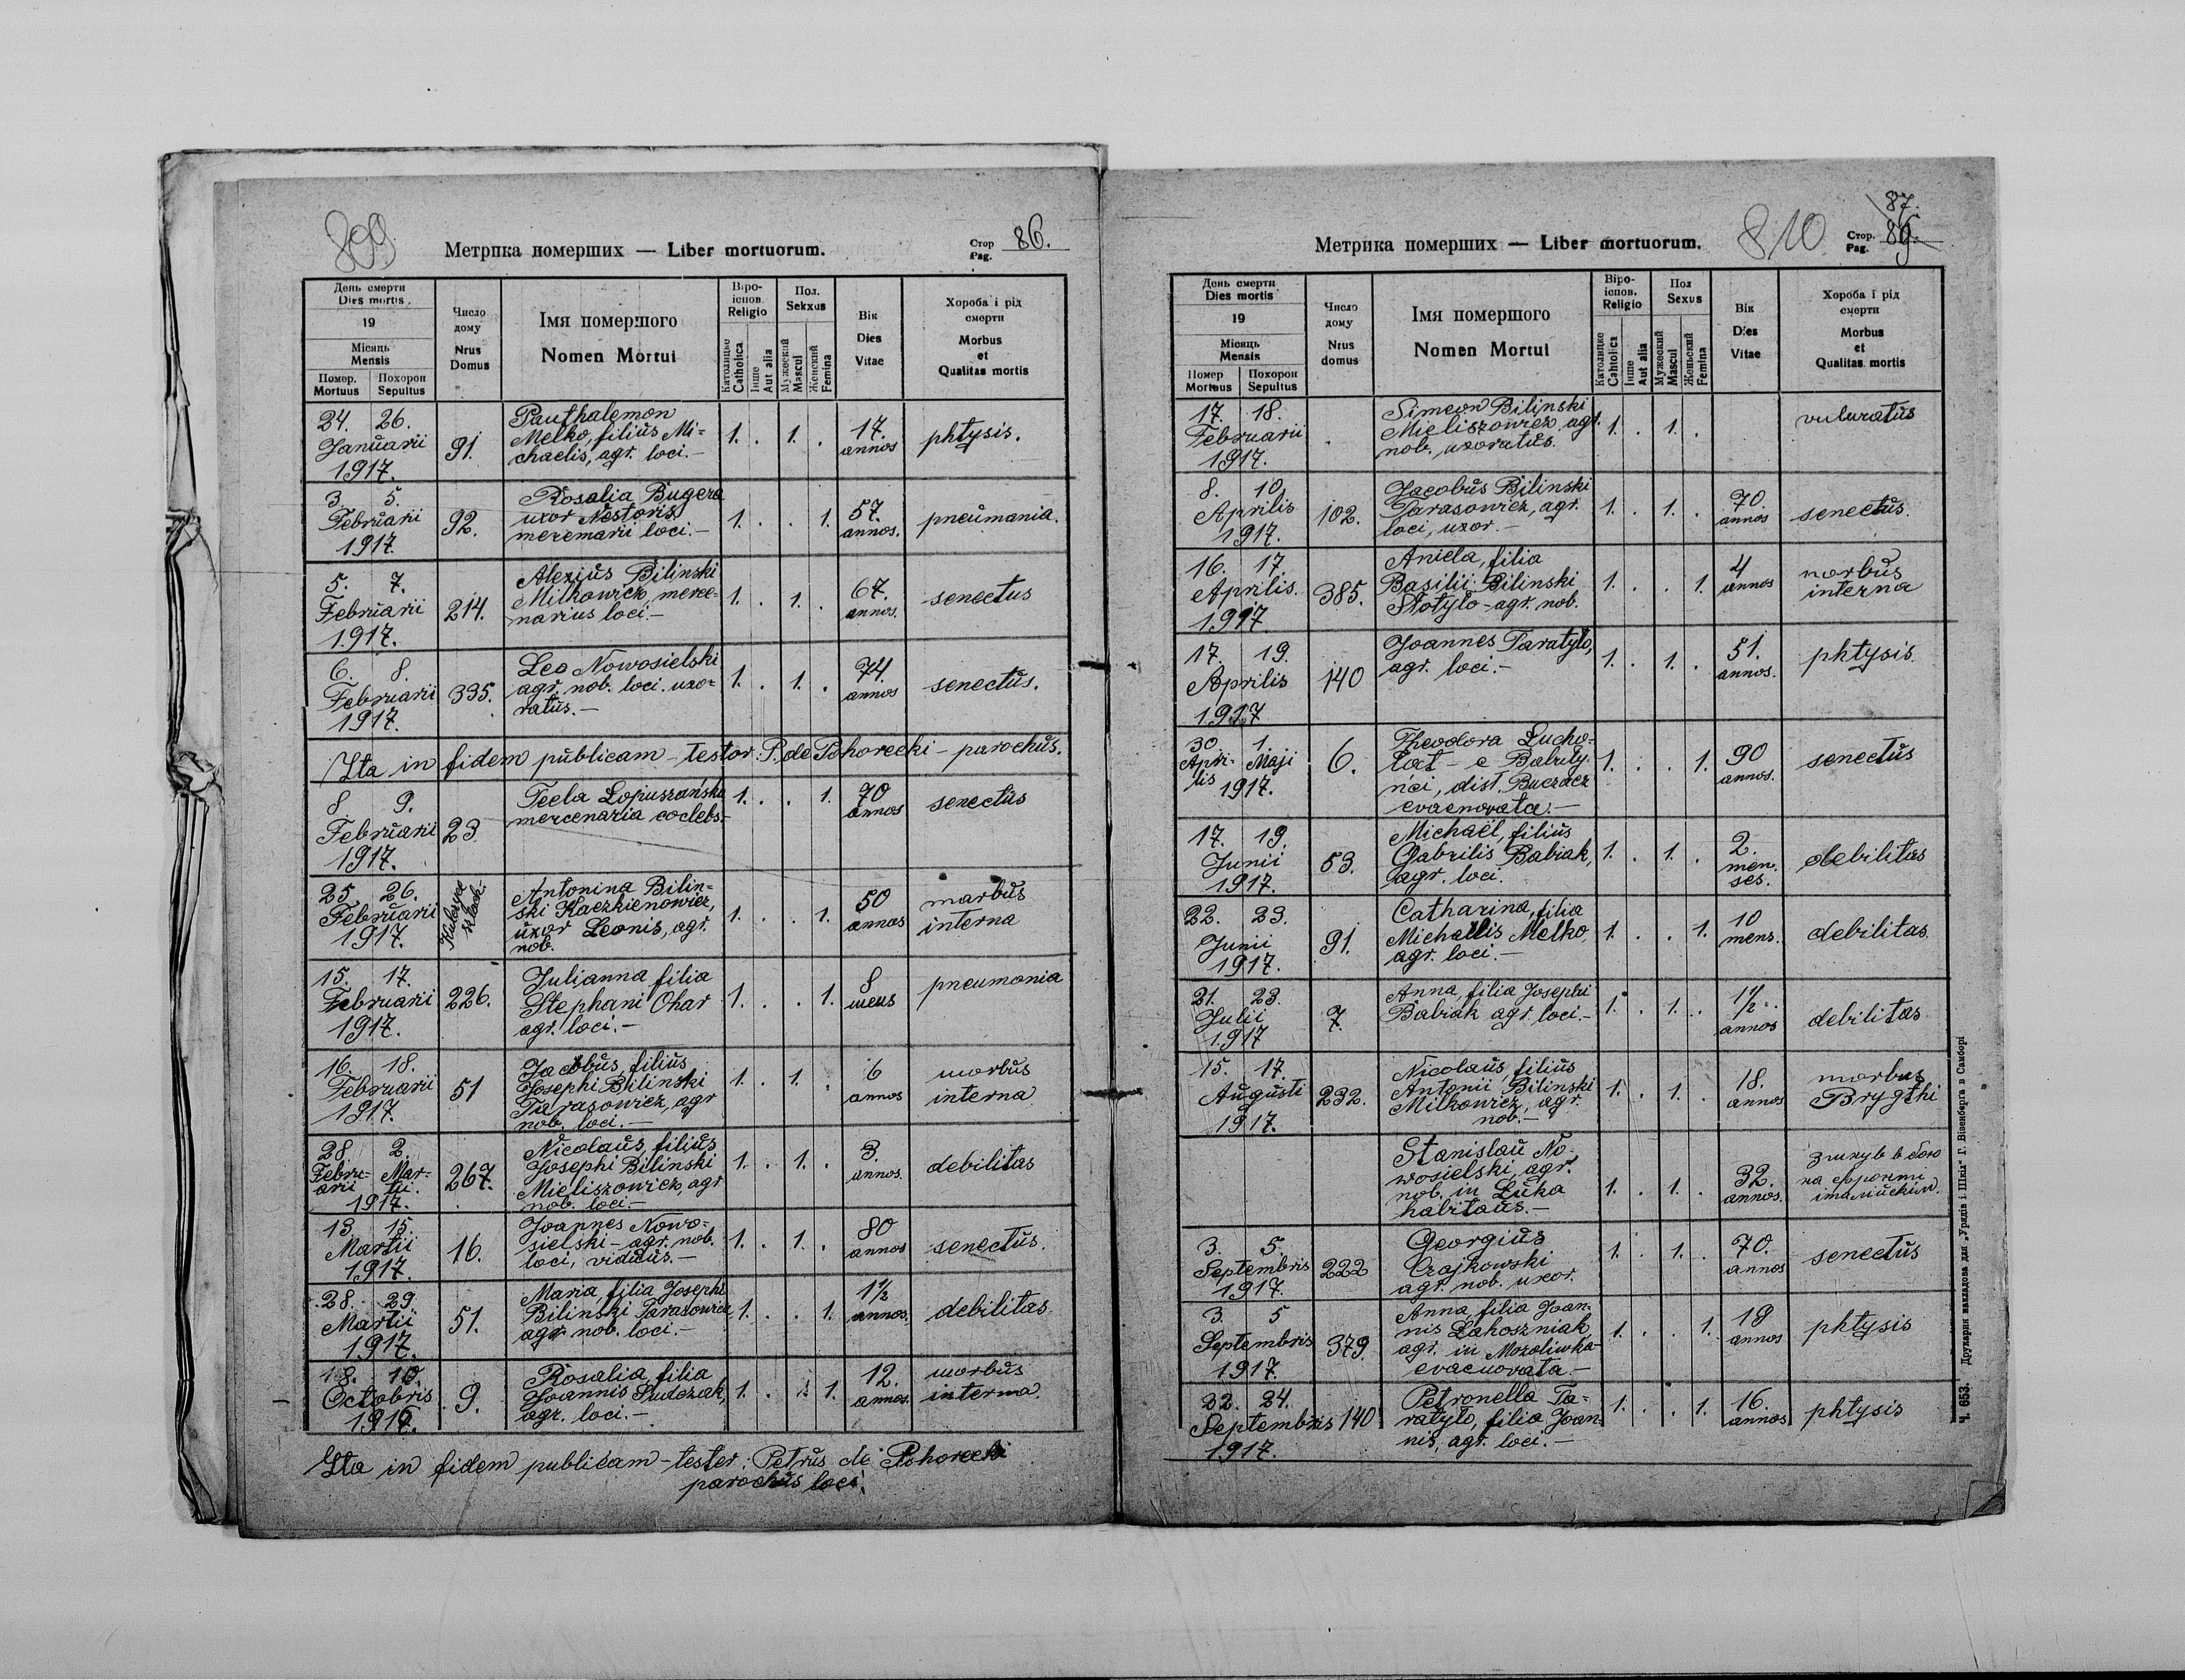 809
Метрика померших — Liber mortuorum.
Стор
Pag.
86.
День смерти
Dies mortis
19
Місяць
Mensis
Помер.
Mortuus
Похорон
Sepultus
Число
дому
Nrus
Domus
Імя помершого
Nomen Mortui
Віро-
іспов.
Religio
Католицке
Catholica
Інше
Aut alia
Пол.
Sekxus
Мужеский
Mascul
Женский
Femina
Вік
Dies
Vitae
Хороба і рід
смерти
Morbus
et
Qualitas mortis
24. 26.
Januarii
1917.
91.
Panthalemon
Melko, filius Mi=
chaelis, agr. loci.-
1. . 1. .
17.
annos
phtysis.
3. 5.
Februarii
1917.
92.
Rosalia Bugera
uxor Nestoris
meremarii loci.-
1. . . 1.
57.
annos.
pneumania.
5. 7.
Februarii
1917.
214.
Alexius Bilinski
Milkowicz, merce-
narius loci.-
1. . 1. .
67.
annos.
senectus
6. 8.
Februarii
1917.
335.
Leo Nowosielski
agr. nob. loci. uxo=
ratus.-
1. . 1. .
74.
annos
senectus.
Ita in fidem publicam - testor: P. de Pohorecki - parochus.
8 9.
Februarii
1917.
23.
Tecla Łopuszańska
mercenaria coelebs.-
1. . . 1.
70
annos
senectus
25. 26.
Februarii
1917.
Kulczyce
szlach.
Antonina Bilin-
ski Kaczkienowicz,
uxor Leonis, agr.
nob.
1. . . 1.
50
annos
marbus
interna
15. 17.
Februarii
1917.
226.
Julianna filia
Stephani Ohar
agr. loci.-
1. . . 1.
8
mens
pneumonia
16. 18.
Februarii
1917.
51
Jacobus, filius
Josephi Bilinski
Tarasowicz, agr
nob. loci.-
1. . 1. .
6
annos
morbus
interna
28. 2.
Febru- Mar-
arii tii.
1917.
267.
Nicolaus, filius
Josephi Bilinski
Mieliszowicz, agr
nob. loci.-
1. . 1. .
3.
annos.
debilitas
13. 15.
Martii
1917.
16.
Joannes Nowo-
sielski - agr. nob.
loci, viduus.-
1. . 1. .
80
annos
senectus.
28. 29.
Martii
1917.
51.
Maria, filia Josephi
Bilinski Tarasowicz
agr. nob. loci.-
1. . . 1.
1½
annos.
debilitas.
18. 10.
Octobris
1916.
9.
Rosalia, filia
Joannis Dudeziak,
agr. loci.-
1. . 1.
12.
annos.
morbus
interna.
Ita in fidem publicam - tester: Petrus de Pohorecki
parochus loci.
Метрика померших — Liber mortuorum.
810
Стор.
Pag.
87.
День смерти
Dies mortis
19
Місяць
Mensis
Помер
Mortuus
Похорон
Sepultus
Число
дому
Nrus
domus
Імя помершого
Nomen Mortui
Віро-
ісnов.
Religio
Католицке
Cahtolica
Інше
Aut alia
Пол
Sexus
Мужеский
Mascul
Женьский
Femina
Вік
Dies
Vitae
Хороба і рід
смерти
Morbus
et
Qualitas mortis
17. 18.
Februarii
1917.
.
Simeon Bilinski
Mieliszowicz, agr.
nob. uxoratus.
1. . 1. .
vulnratus
8. 10.
Aprilis
1917.
102.
Jacobus Bilinski
Tarasowicz, agr.
loci, uxor.-
1. . 1. .
70.
annos
senectus.
16. 17
Aprilis.
1917.
385.
Aniela, filia
Basilii Bilinski
Stotyło - agr. nob.
1. . . 1.
4
annos
norbus
interna
17. 19.
Aprilis
1917
140
Joannes Taratyło,
agr. loci.-
1. . 1. .
51.
annos.
phtysis.
30. 1.
Apri- Maji
lis
1917.
6.
Theodora Lucho-
łat - e Bobuly-
nci, dist. Buczacz
evacnovata.-
1. . . 1.
90
annos.
senectus
17. 19.
Junii
1917.
53.
Michaël, filius
Gabrilis Babiak,
agr. loci.
1. . 1. .
2.
men.
ses.
debilitas
22. 23.
Junii
1917.
91.
Catharina, filia
Michaelis Melko,
agr. loci.-
1. . . 1.
10
mens.
debilitas.
21. 23.
Julii
1917
7.
Anna, filia Josephi
Babiak agr. loci.-
1. . 1. .
1½
annos
debilitas
15. 17.
Augusti
1917.
232.
Nicolaus, filius
Antonii Bilinski
Milkowicz, agr.
nob.-
1. . 1. .
18.
annos
morbus
Brygthi
Stanislau No-
wosielski, agr.
nob. in Łuka
habitaus.-
1. . 1. .
32.
annos.
згинув в бою
на фронті
італійскім.
3. 5.
Septembris
1917.
222
Georgius
Czajkowski
agr. nob. uxor.
1. . 1. .
70.
annos
senectus
3. 5
Septembris
1917.
379.
Anna, filia Joan-
nis Lahoszniak
agr. in Mozoliwka
evacuovata.-
1. . . 1.
19
annos
phtysis
22. 24.
Septembris
1917.
140
Petronella Ta-
ratyło, filia Joan-
nis, agr. loci.-
1. . . 1.
16.
annos
phtysis
Ч. 653. Друкарня накладова для „Урядів і Шкіл" Г. Візенберга в Самборі